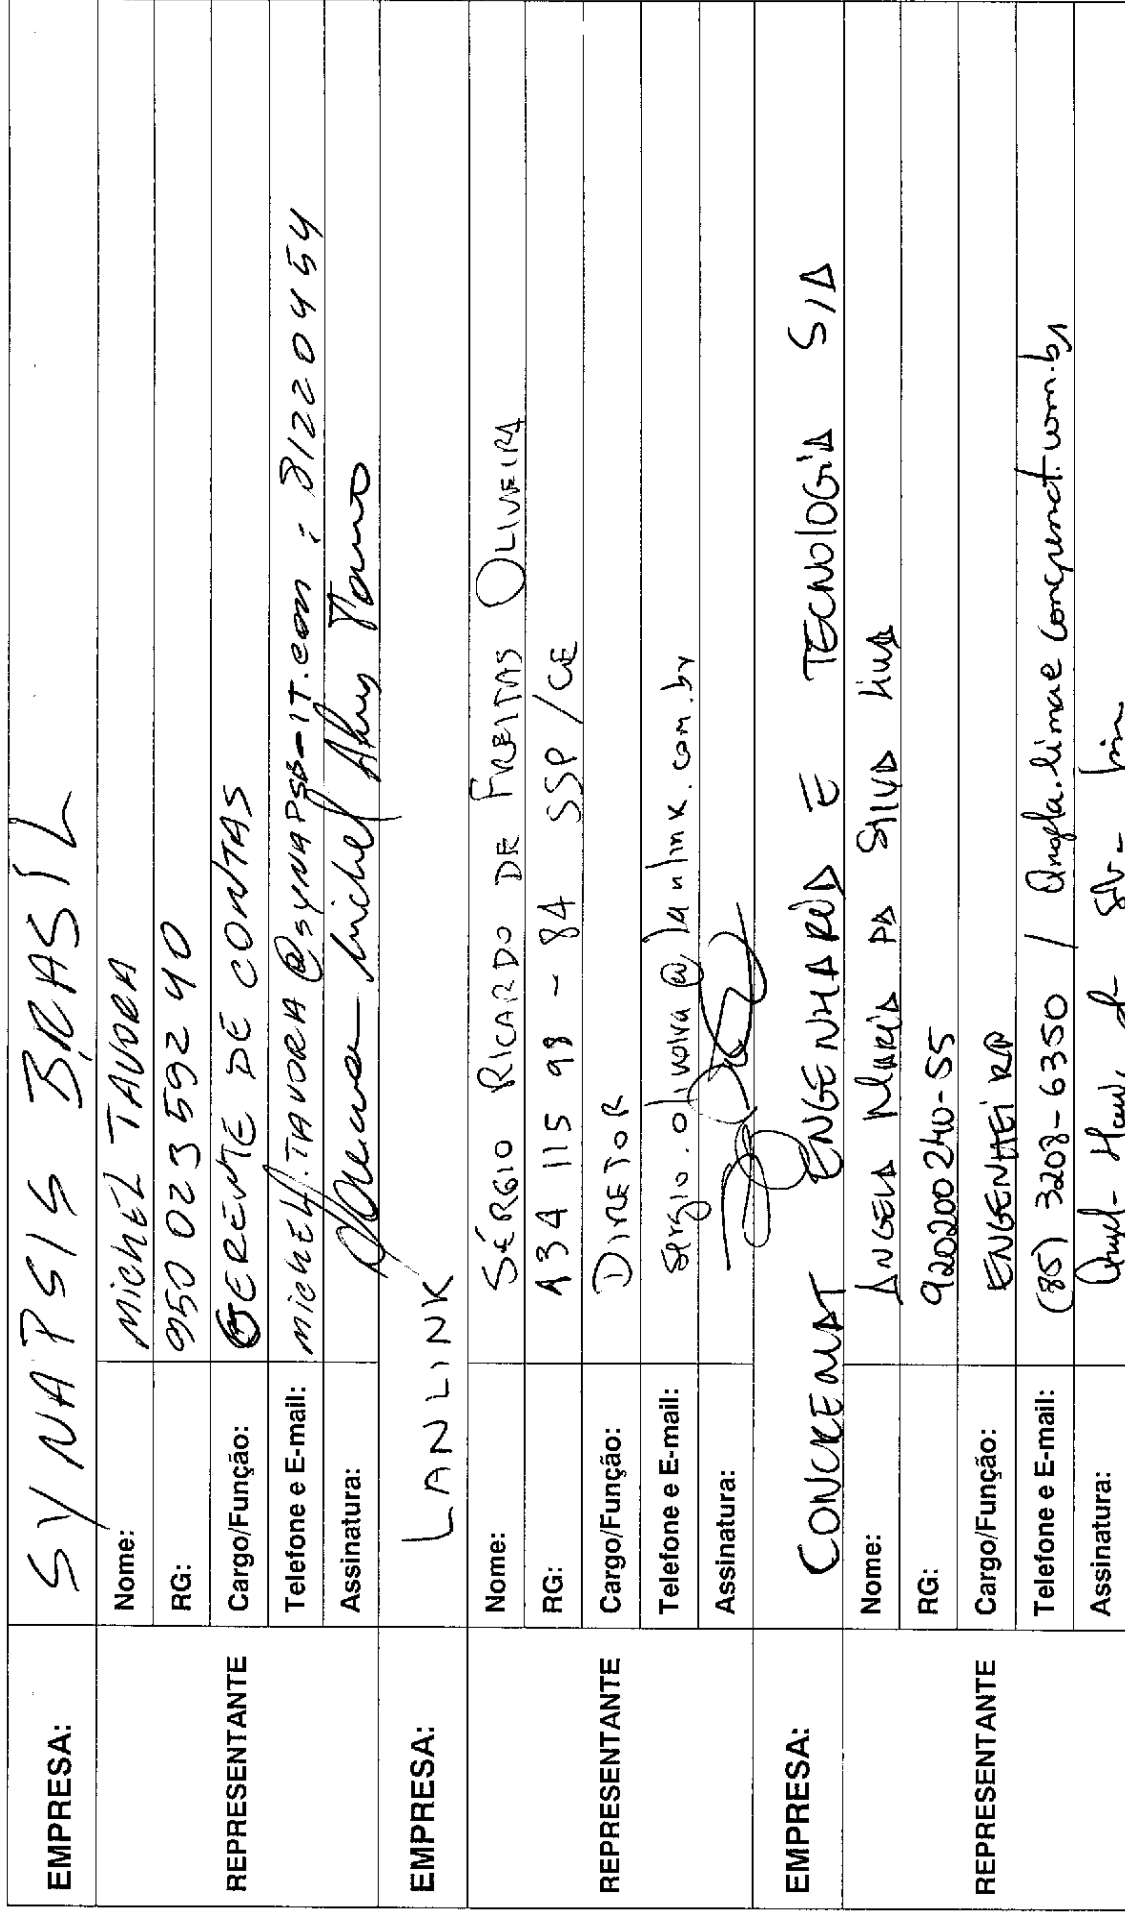 EMPRESA: SYNAPSIS BRASIL
REPRESENTANTE
Nome: MICHEL TAVORA
RG: 950 023 592 40
Cargo/Função: GERENTE DE CONTAS
Telefone e E-mail: MICHEL.TAVORA @SYNAPSIS-IT.com : 81220454
Assinatura: Michel Tavora
EMPRESA: LANLINK
REPRESENTANTE
Nome: SÉRGIO RICARDO DE FREITAS OLIVEIRA
RG: 134 115 98 - 84 SSP/CE
Cargo/Função: DIRETOR
Telefone e E-mail: sergio.oliveira@lanlink.com.br
Assinatura:
EMPRESA: CONCREMAT ENGENHARIA E TECNOLOGIA S/A
REPRESENTANTE
Nome: ANGELA MARIA DA SILVA LIMA
RG: 92020020240-55
Cargo/Função: ENGENHEIRA
Telefone e E-mail: (85) 3208-6350 / angela.lima@concremat.com.br
Assinatura: